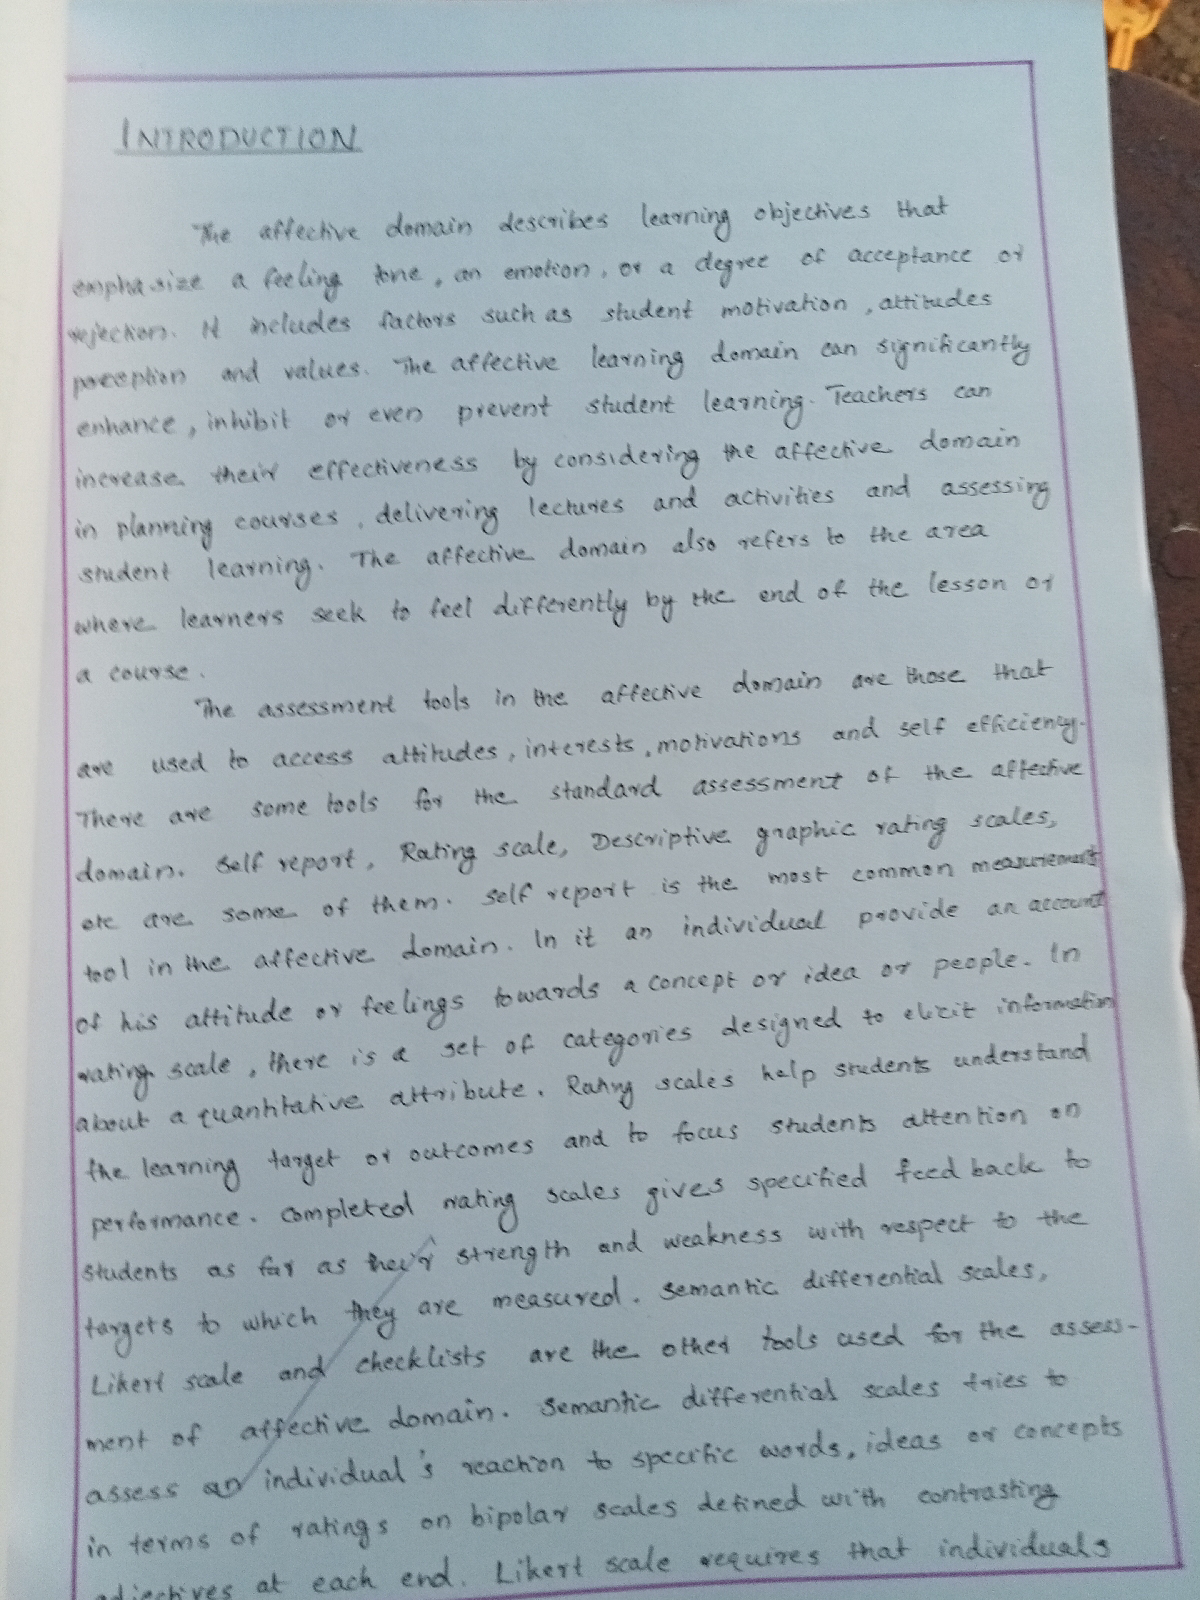 INTRODUCTION
The affective domain describes learning objectives that
emphasize a feeling tone, an emotion, or a degree of acceptance or
rejection. It includes factors such as student motivation, attitudes
perception and values. The affective learning domain can significantly
enhance, inhibit or even prevent student learning. Teachers can
increase their effectiveness by considering the affective domain
in planning courses, delivering lectures and activities and assessing
student learning. The affective domain also refers to the area
where learners seek to feel differently by the end of the lesson or
a course.
The assessment tools in the affective domain are those that
are used to access attitudes, interests, motivations and self efficiency.
There are some tools for the standard assessment of the affective
domain. Self report, Rating scale, Descriptive graphic rating scales,
etc are some of them. Self report is the most common measurement
tool in the affective domain. In it an individual provide an account
of his attitude or feelings towards a concept or idea or people. In
rating scale, there is a set of categories designed to elicit information
about a quantitative attribute. Rating scales help students understand
the learning target or outcomes and to focus students attention on
performance. Completed rating scales gives specified feed back to
students as far as their strength and weakness with respect to the
targets to which they are measured. Semantic differential scales,
Likert scale and checklists are the other tools used for the assess-
ment of affective domain. Semantic differential scales tries to
assess an individual's reaction to specific words, ideas or concepts
in terms of ratings on bipolar scales defined with contrasting
adjectives at each end. Likert scale requires that individuals